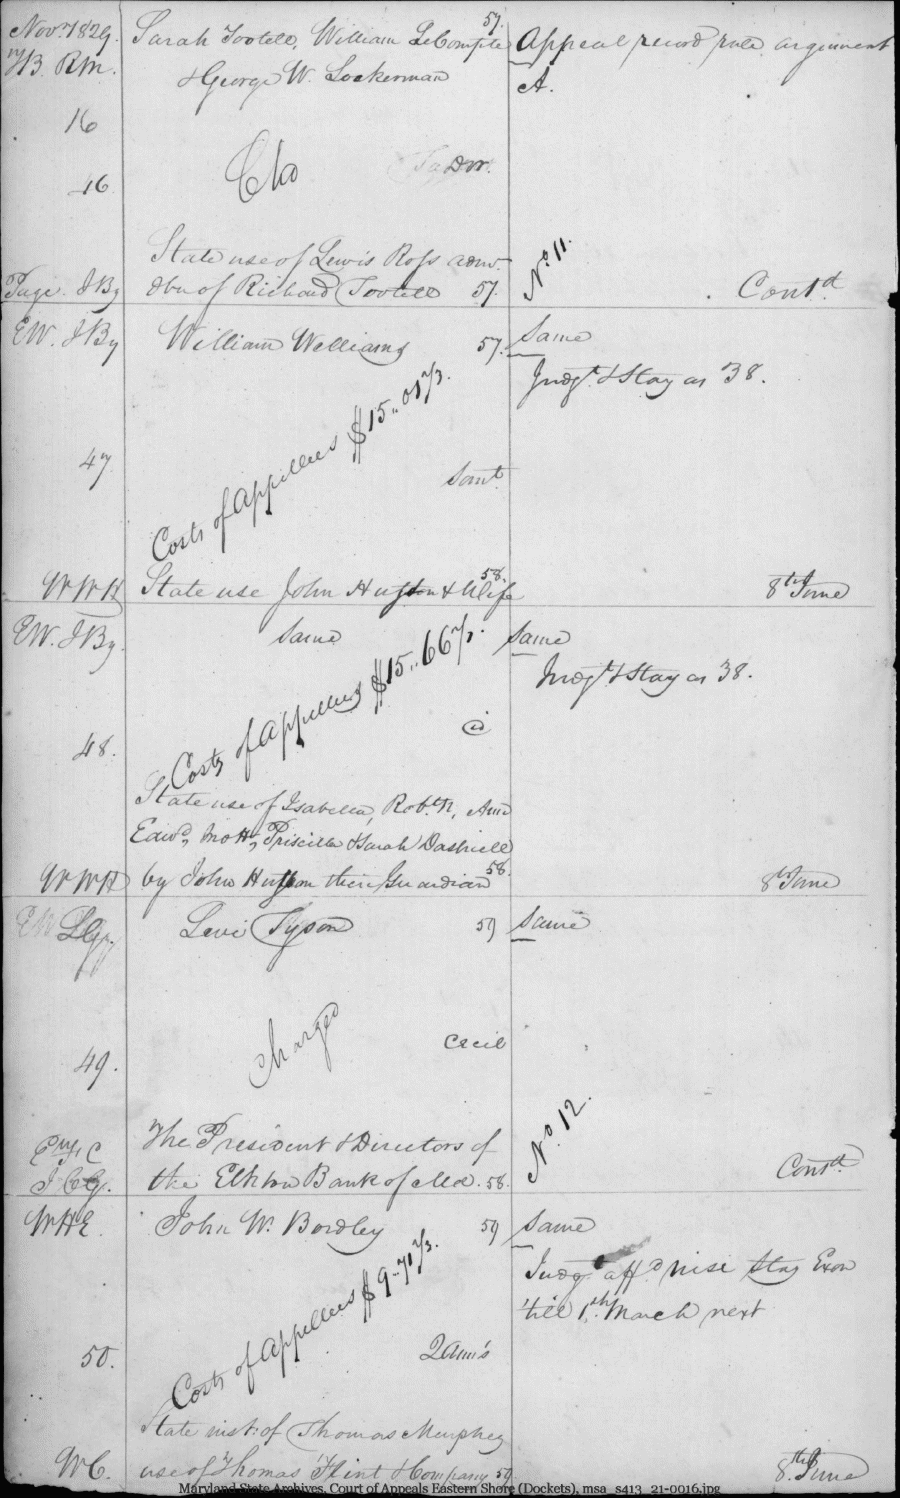 Novr 1829. Sarah Tootell, William LeCompte 57. Appeal record rule argument
JB. RM. & George W. Lockerman A.
16
46 Dor.
State use of Lewis Ross admr. No. 11.
Page. JBy dbn of Richard Tootell 57. Contd
EW. JBy William Williams 57. Same
Judgt & Stay as 38.
Costs of Appellees $15..01 2/3.
47 Somt
WWH State use John Huston & Wife 58. 8th June
EW. JBy. Same Same
Costs of Appellees $15..66 2/3. Judgt & Stay as 38.
48. id
State use of Isabella, Robt. H, Ann
Edwd, Priscilla & Sarah Dashiell
WWH by John Huston their Guardian 58. 8th June
Levi Tyson 59 Same
Charged
49. Cecil
The President & Directors of No. 12.
JCG. the Elkton Bank of Md. 58. Contd
WHE. John W. Bordley 59 Same
Costs of Appellees $9-71 2/3. Judgt affd nisi Stay Exon
'till 1st March next
50. 2 Ann's
State inst: of Thomas Murphey
WC. use of Thomas Flint & Company 59 8th June
Maryland State Archives, Court of Appeals Eastern Shore (Dockets), msa_s413_21-0016.jpg